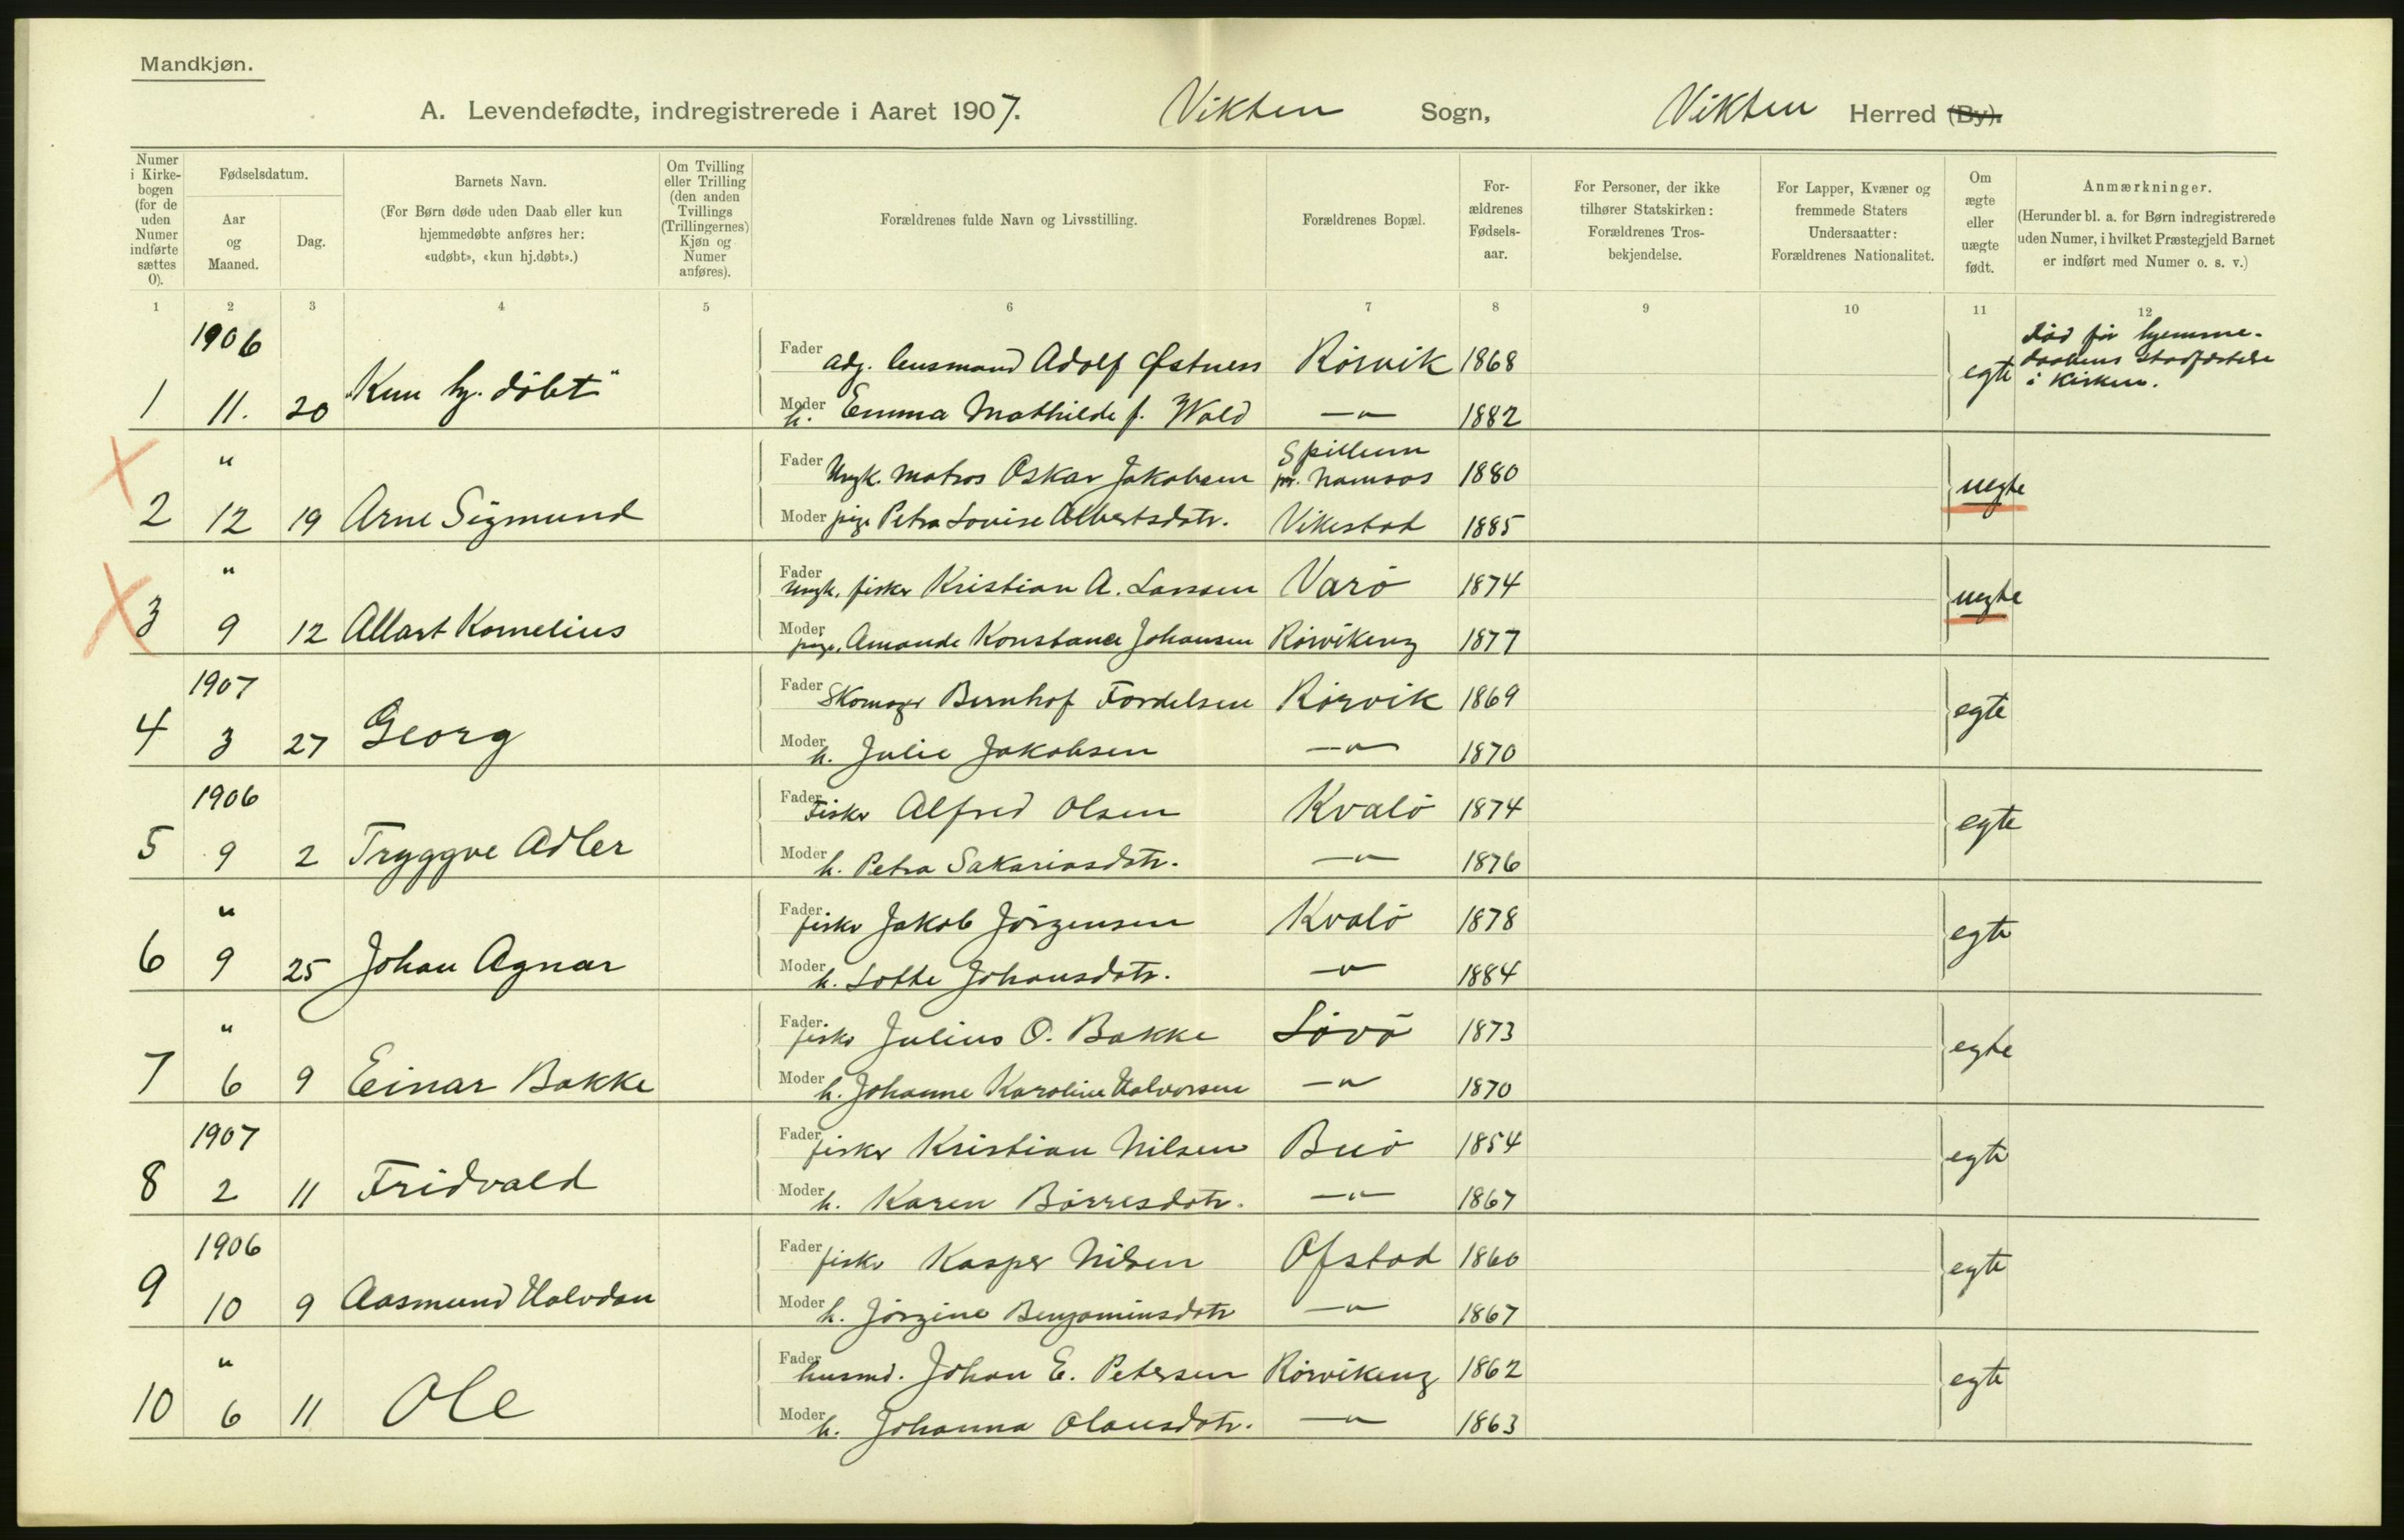 Mandkjøn.
A. Levendefødte, indregistrerede i Aaret 1907. Vikten Sogn, Vikten Herred (By).
Numer i Kirkebogen (for de uden Numer indførte sættes 0).
Fødselsdatum.
Aar og Maaned.
Dag.
Barnets Navn.
(For Børn døde uden Daab eller kun hjemmedøbte anføres her: «udøbt», «kun hj.døbt».)
Om Tvilling eller Trilling (den anden Tvillings (Trillingernes) Kjøn og Numer anføres).
Forældrenes fulde Navn og Livsstilling.
Forældrenes Bopæl.
For-ældrenes Fødsels-aar.
For Personer, der ikke tilhører Statskirken: Forældrenes Tros-bekjendelse.
For Lapper, Kvæner og fremmede Staters Undersaatter: Forældrenes Nationalitet.
Om ægte eller uægte født.
Anmærkninger.
(Herunder bl. a. for Børn indregistrerede uden Numer, i hvilket Præstegjeld Barnet er indført med Numer o. s. v.)
1 2 3 4 5 6 7 8 9 10 11 12
1906
Fader adj. lensmand Adolf Østness Rørvik 1868
egte
død før hjemme-
daabens stadfæstelse
i Kirken.
1 11. 20 "Kun hj. døbt"
Moder h. Emma Mathilde f. Wold —"— 1882
"
Fader Ungk. matros Oskar Jakobsen Spillum pr. Namsos 1880
uegte
2 12 19 Arne Sigmund
Moder pige Petra Lovise Albertsdatr. Vikestad 1885
"
Fader Ungk. fisker Kristian A. Larssen Varø 1874
uegte
3 9 12 Allart Kornelius
Moder pige. Amande Konstance Johansen Rørvikeng 1877
1907
Fader Skomager Bernhof Fordelsen Rørvik 1869
egte
4 3 27 Georg
Moder h. Julie Jakobsen —"— 1870
1906
Fader Fisker Alfred Olsen Kvalø 1874
egte
5 9 2 Tryggve Adler
Moder h. Petra Sakariasdatr. —"— 1876
"
Fader fisker Jakob Jørgensen Kvalø 1878
egte
6 9 25 Johan Agnar
Moder h. Lotte Johansdatr. —"— 1884
"
Fader fisker Julius O. Bakke Løvø 1873
egte
7 6 9 Einar Bakke
Moder h. Johanne Karoline Halvorsen —"— 1870
1907
Fader fisker Kristian Nilsen Buø 1854
egte
8 2 11 Fridvald
Moder h. Karen Børresdatr. —"— 1867
1906
Fader fisker Kasper Nilsen Ofstad 1860
egte
9 10 9 Aasmund Halvdan
Moder h. Jørgine Benjaminsdatr —"— 1867
"
Fader husmd. Johan E. Petersen Rørvikeng 1862
egte
10 6 11 Ole
Moder h. Johanna Olausdatr. —"— 1863